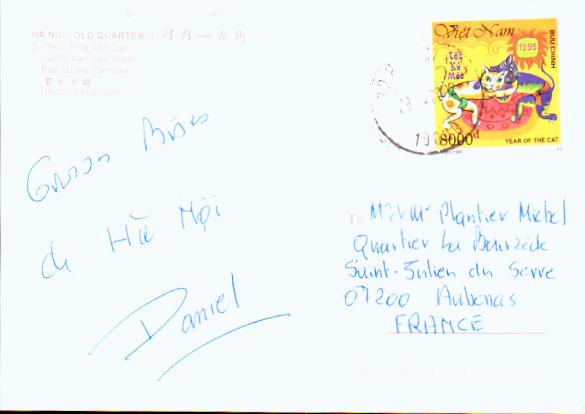 HANOI - OLD QUARTER | 河內 — 古街
3. Phố Lương Văn Can
Lương Văn Can street
Rue Lương Văn Can
梁文干路
Photo by Hữu Việt
Grosses Bises
de Hà Nội
Daniel
Việt Nam
1999
BƯU CHÍNH
Tết
Kỷ
Mão
8000đ
YEAR OF THE CAT
To M et Mme Plantier Michel
Quartier La Bourzède
Saint-Julien du Serre
07200 Aubenas
FRANCE